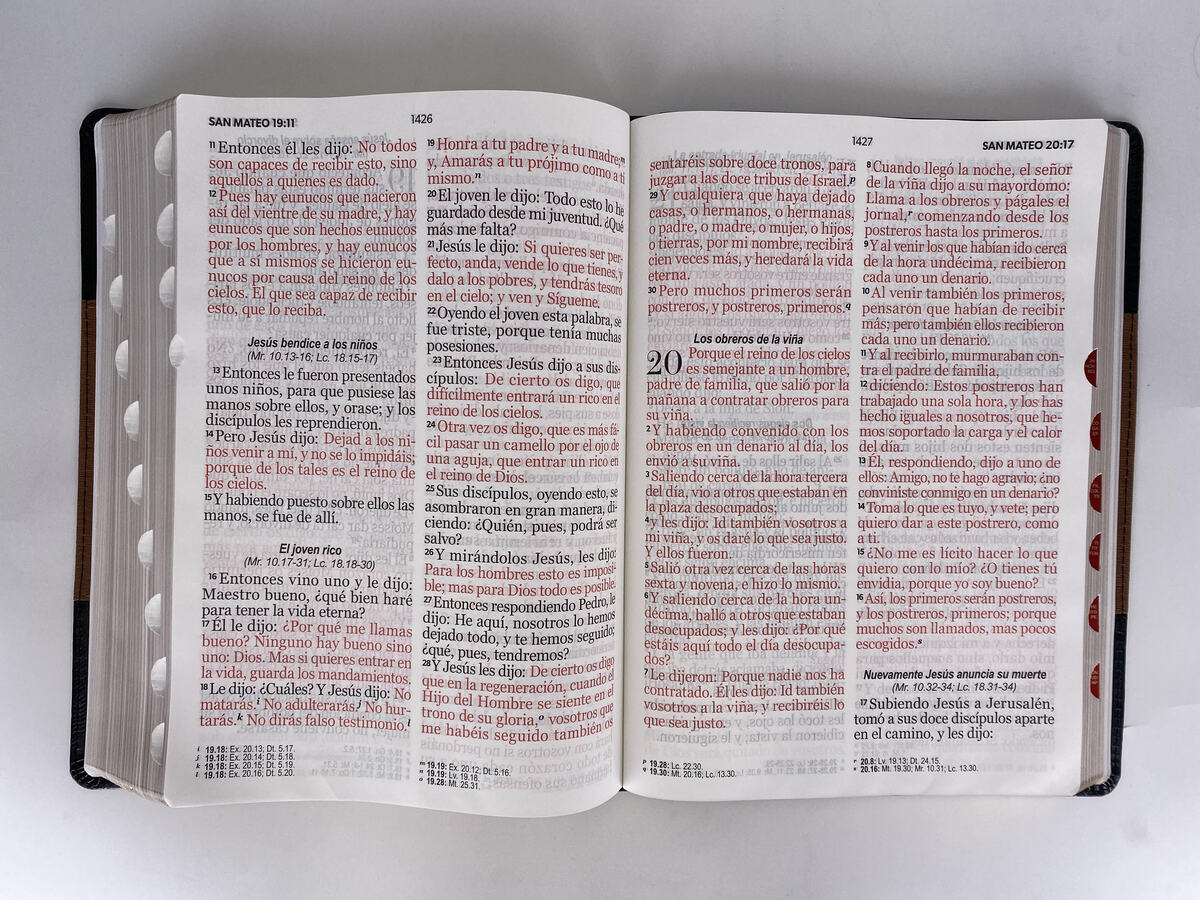 SAN MATEO 19:11
1426
11 Entonces él les dijo: No todos
son capaces de recibir esto, sino
aquellos a quienes es dado.
12 Pues hay eunucos que nacieron
así del vientre de su madre, y hay
eunucos que son hechos eunucos
por los hombres, y hay eunucos
que a sí mismos se hicieron eu-
nucos por causa del reino de los
cielos. El que sea capaz de recibir
esto, que lo reciba.
Jesús bendice a los niños
(Mr. 10.13-16; Lc. 18.15-17)
13 Entonces le fueron presentados
unos niños, para que pusiese las
manos sobre ellos, y orase; y los
discípulos les reprendieron.
14 Pero Jesús dijo: Dejad a los ni-
ños venir a mí, y no se lo impidáis;
porque de los tales es el reino de
los cielos.
15 Y habiendo puesto sobre ellos las
manos, se fue de allí.
El joven rico
(Mr. 10.17-31; Lc. 18.18-30)
16 Entonces vino uno y le dijo:
Maestro bueno, ¿qué bien haré
para tener la vida eterna?
17 Él le dijo: ¿Por qué me llamas
bueno? Ninguno hay bueno sino
uno: Dios. Mas si quieres entrar en
la vida, guarda los mandamientos.
18 Le dijo: ¿Cuáles? Y Jesús dijo: No
matarás.i No adulterarás.j No hur-
tarás.k No dirás falso testimonio.l
i 19.18: Ex. 20.13; Dt. 5.17.
j 19.18: Ex. 20.14; Dt. 5.18.
k 19.18: Ex. 20.15; Dt. 5.19.
l 19.18: Ex. 20.16; Dt. 5.20.
19 Honra a tu padre y a tu madre;m
y, Amarás a tu prójimo como a ti
mismo.n
20 El joven le dijo: Todo esto lo he
guardado desde mi juventud. ¿Qué
más me falta?
21 Jesús le dijo: Si quieres ser per-
fecto, anda, vende lo que tienes, y
dalo a los pobres, y tendrás tesoro
en el cielo; y ven y Sígueme.
22 Oyendo el joven esta palabra, se
fue triste, porque tenía muchas
posesiones.
23 Entonces Jesús dijo a sus dis-
cípulos: De cierto os digo, que
difícilmente entrará un rico en el
reino de los cielos.
24 Otra vez os digo, que es más fá-
cil pasar un camello por el ojo de
una aguja, que entrar un rico en
el reino de Dios.
25 Sus discípulos, oyendo esto, se
asombraron en gran manera, di-
ciendo: ¿Quién, pues, podrá ser
salvo?
26 Y mirándolos Jesús, les dijo:
Para los hombres esto es imposi-
ble; mas para Dios todo es posible.
27 Entonces respondiendo Pedro, le
dijo: He aquí, nosotros lo hemos
dejado todo, y te hemos seguido;
¿qué, pues, tendremos?
28 Y Jesús les dijo: De cierto os digo
que en la regeneración, cuando el
Hijo del Hombre se siente en el
trono de su gloria,o vosotros que
me habéis seguido también os
m 19.19: Ex. 20.12; Dt. 5.16.
n 19.19: Lv. 19.18.
o 19.28: Mt. 25.31.
1427
SAN MATEO 20:17
sentaréis sobre doce tronos, para
juzgar a las doce tribus de Israel.p
29 Y cualquiera que haya dejado
casas, o hermanos, o hermanas,
o padre, o madre, o mujer, o hijos,
o tierras, por mi nombre, recibirá
cien veces más, y heredará la vida
eterna.
30 Pero muchos primeros serán
postreros, y postreros, primeros.q
Los obreros de la viña
20 Porque el reino de los cielos
es semejante a un hombre,
padre de familia, que salió por la
mañana a contratar obreros para
su viña.
2 Y habiendo convenido con los
obreros en un denario al día, los
envió a su viña.
3 Saliendo cerca de la hora tercera
del día, vio a otros que estaban en
la plaza desocupados;
4 y les dijo: Id también vosotros a
mi viña, y os daré lo que sea justo.
Y ellos fueron.
5 Salió otra vez cerca de las horas
sexta y novena, e hizo lo mismo.
6 Y saliendo cerca de la hora un-
décima, halló a otros que estaban
desocupados; y les dijo: ¿Por qué
estáis aquí todo el día desocupa-
dos?
7 Le dijeron: Porque nadie nos ha
contratado. Él les dijo: Id también
vosotros a la viña, y recibiréis lo
que sea justo.
p 19.28: Lc. 22.30.
q 19.30: Mt. 20.16; Lc. 13.30.
8 Cuando llegó la noche, el señor
de la viña dijo a su mayordomo:
Llama a los obreros y págales el
jornal,r comenzando desde los
postreros hasta los primeros.
9 Y al venir los que habían ido cerca
de la hora undécima, recibieron
cada uno un denario.
10 Al venir también los primeros,
pensaron que habían de recibir
más; pero también ellos recibieron
cada uno un denario.
11 Y al recibirlo, murmuraban con-
tra el padre de familia,
12 diciendo: Estos postreros han
trabajado una sola hora, y los has
hecho iguales a nosotros, que he-
mos soportado la carga y el calor
del día.
13 Él, respondiendo, dijo a uno de
ellos: Amigo, no te hago agravio; ¿no
conviniste conmigo en un denario?
14 Toma lo que es tuyo, y vete; pero
quiero dar a este postrero, como
a ti.
15 ¿No me es lícito hacer lo que
quiero con lo mío? ¿O tienes tú
envidia, porque yo soy bueno?
16 Así, los primeros serán postreros,
y los postreros, primeros; porque
muchos son llamados, mas pocos
escogidos.s
Nuevamente Jesús anuncia su muerte
(Mr. 10.32-34; Lc. 18.31-34)
17 Subiendo Jesús a Jerusalén,
tomó a sus doce discípulos aparte
en el camino, y les dijo:
r 20.8: Lv. 19.13; Dt. 24.15.
s 20.16: Mt. 19.30; Mr. 10.31; Lc. 13.30.